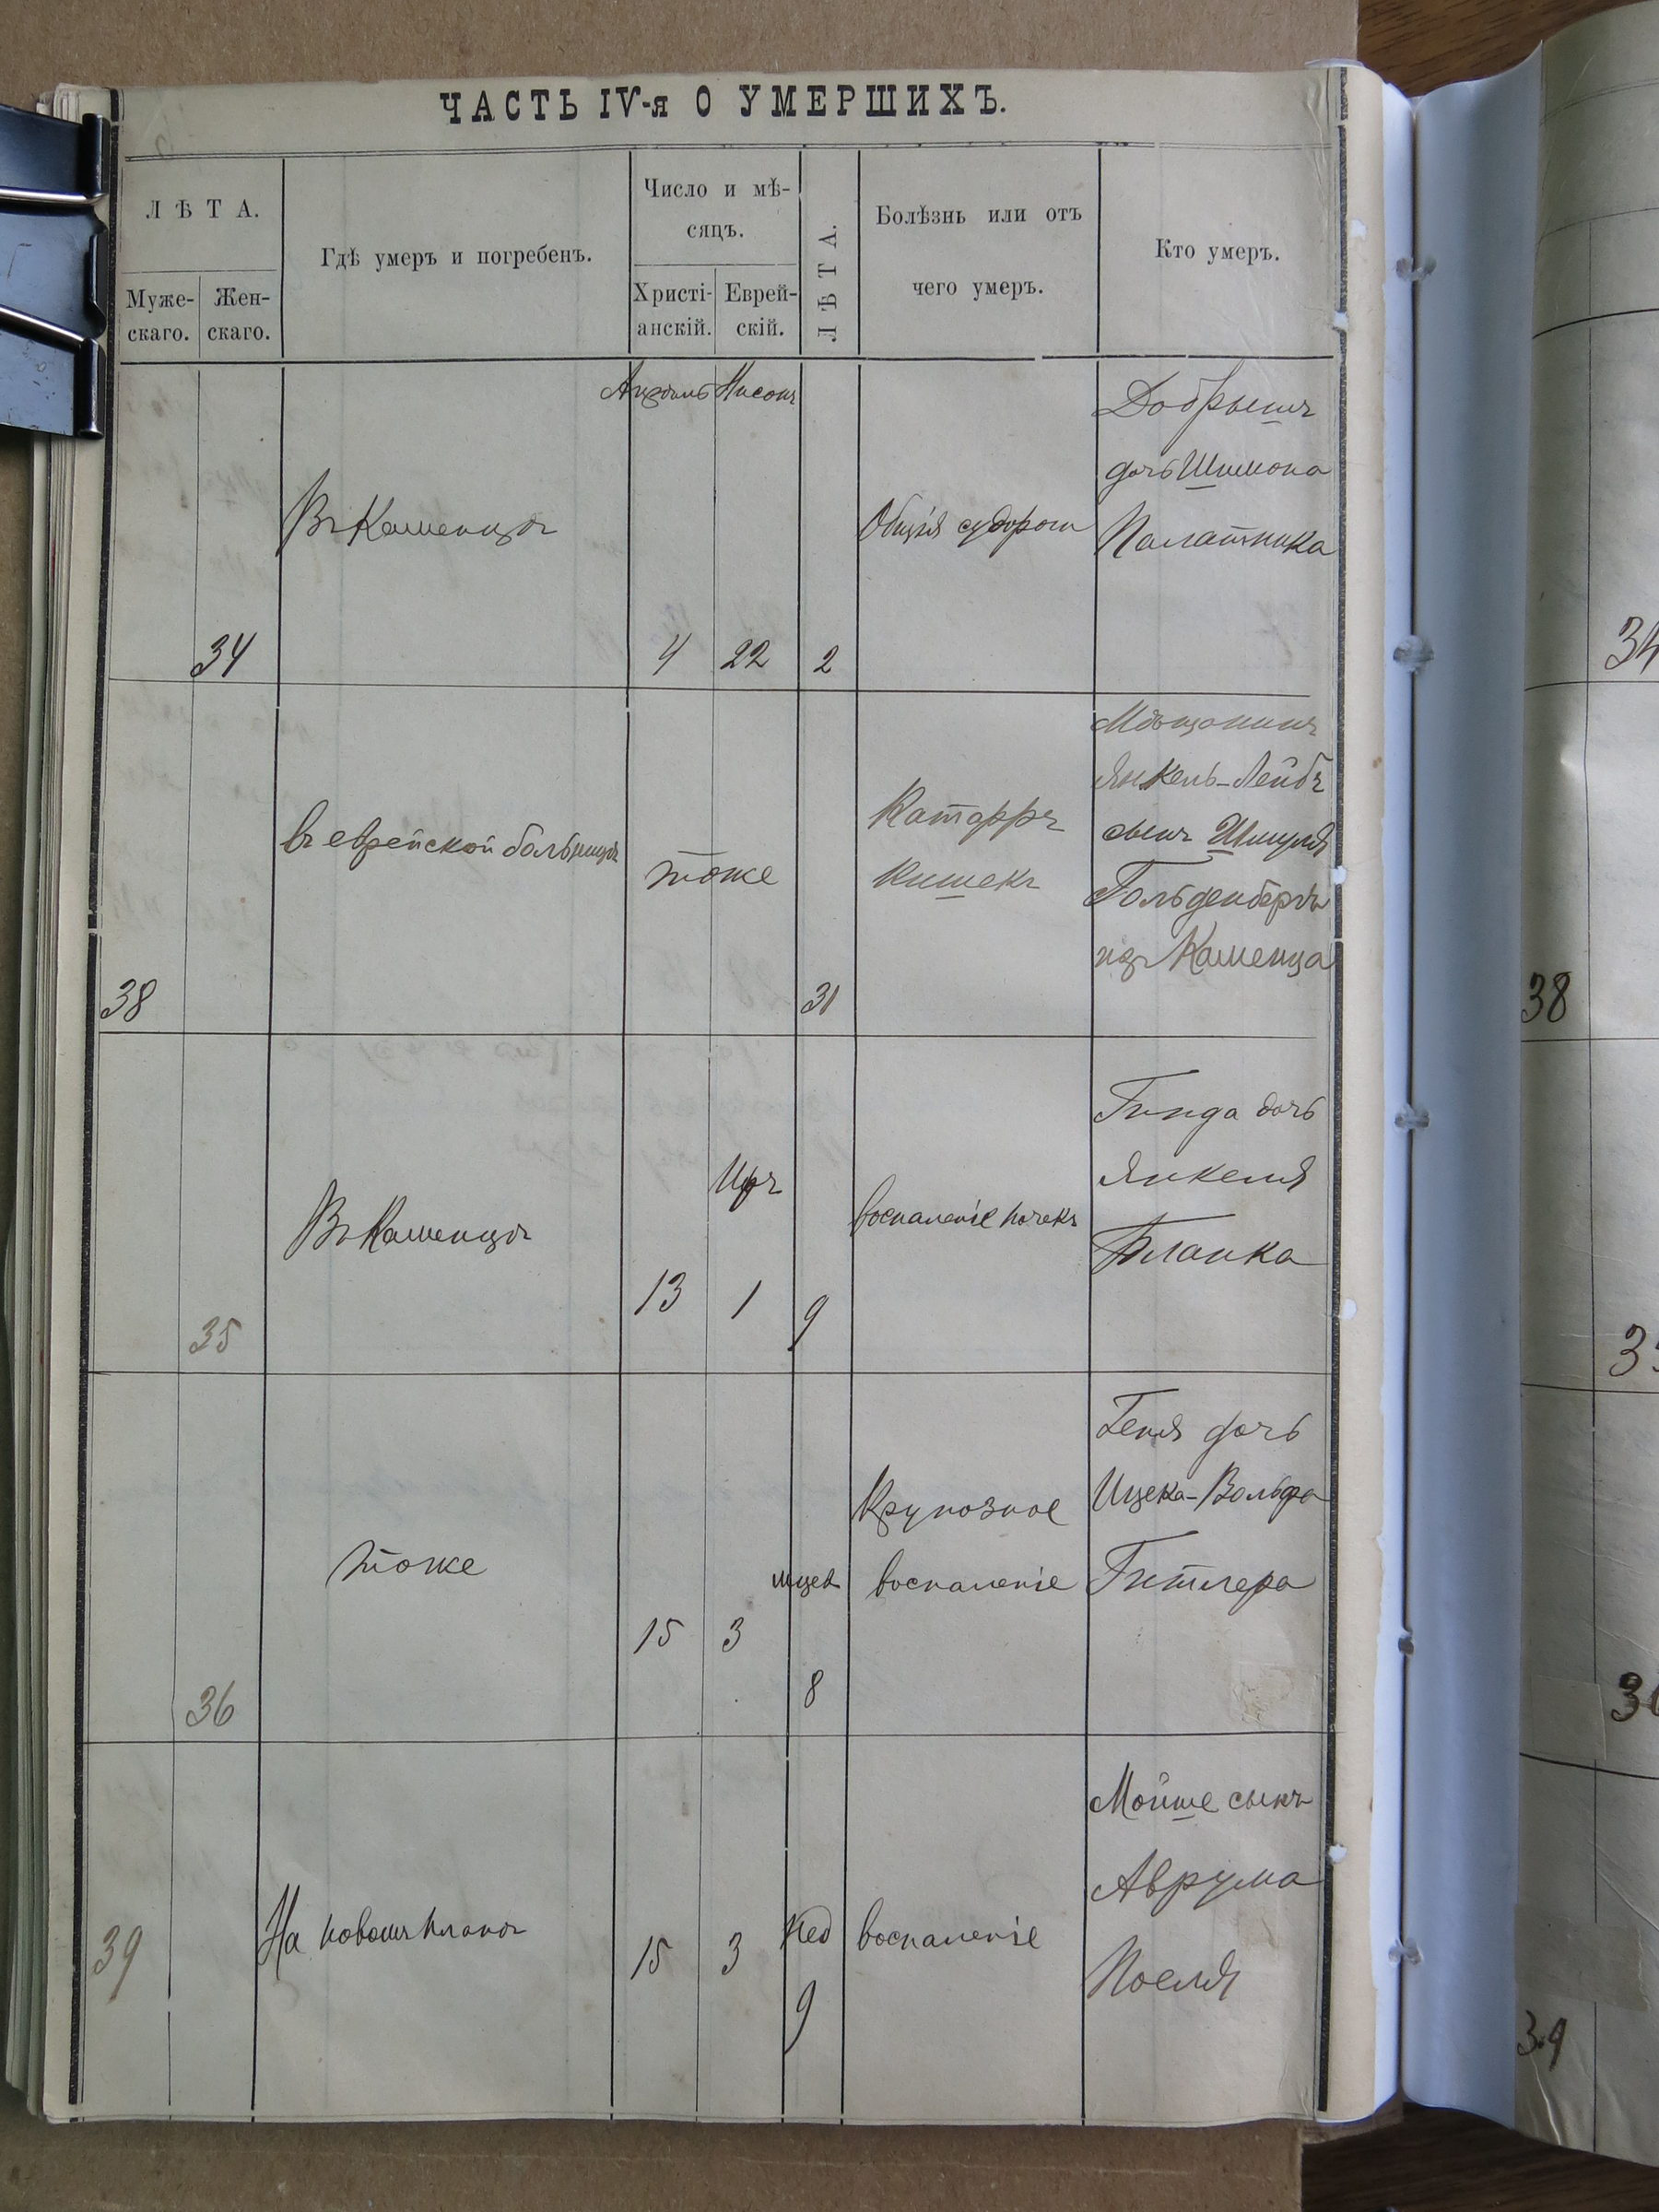 ЧАСТЬ IV-я О УМЕРШИХЪ.
ЛѢТА.
Муже-
скаго.
Жен-
скаго.
Гдѣ умеръ и погребенъ.
Число и мѣ-
сяцъ.
Христі-
анскій.
Еврей-
скій.
ЛѢТА.
Болѣзнь или отъ
чего умеръ.
Кто умеръ.
34
Въ Каменцѣ
Апрѣль Нисонъ
4 22 2
Общія судороги
Добрышъ
дочь Шимона
Палатника
34
38
въ еврейской больницѣ
тоже
31
Катарръ
кишекъ
Мѣщанинъ
Янкель-Лейбъ
сынъ Шмуля
Гольденберга
изъ Каменца
38
35
Въ Каменцѣ
Иръ
13 1 9
воспаленіе почекъ
Гинда дочь
Янкеля
Бланка
36
тоже
15 3
мцев
8
Крупозное
воспаленіе
Геня дочь
Ицека-Вольфа
Гитлера
39
На новомъ планѣ
15 3
нед
9
воспаленіе
Мойше сынъ
Аврума
Поеля
39